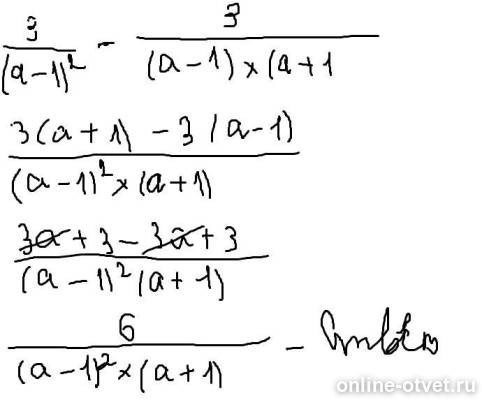 3/(a-1)² - 3/((a-1)×(a+1
(3(a+1) - 3(a-1))/((a-1)²×(a+1))
(3a+3-3a+3)/((a-1)²(a+1))
6/((a-1)²×(a+1)) - ответ
online-otvet.ru